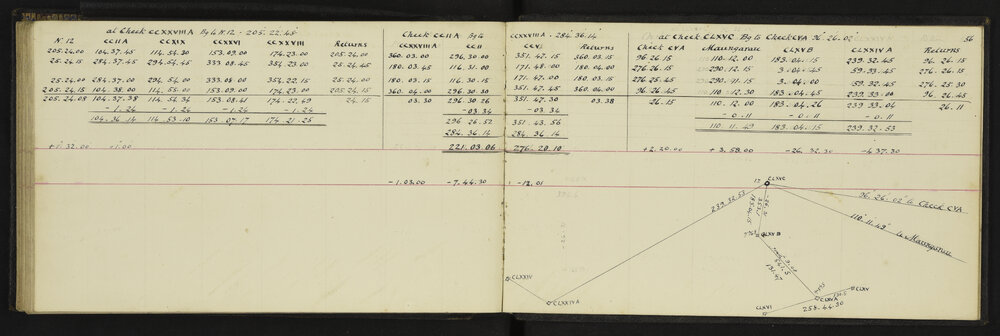 at Check CCXXVIII A Bg to N.12 - 205.22.45
N.12 CCIIA CCXIX CCXXVI CCXXVIII Returns
205.24.00 104.37.45 114.54.30 153.09.00 174.23.00 205.24.00
25.24.15 284.37.45 294.54.45 333.08.45 354.23.00 25.24.00
25.24.00 284.37.00 294.54.00 333.08.00 354.22.15 25.24.00
205.24.15 104.38.00 114.55.00 153.09.00 174.23.00 205.24.15
205.24.08 104.37.38 114.54.34 153.08.41 174.22.49 24.15
-1.24 -1.24 -1.24 -1.24
104.36.14 114.53.10 153.07.17 174.21.25
+1.32.00 -1.00
Check CCIIA Bg to CCXXVIII A - 284.36.14
CCXXVIII A CCII CCV Returns
360.03.00 296.30.00 351.47.15 360.03.15
180.03.45 116.31.00 171.48.00 180.04.00
180.03.15 116.30.15 171.47.00 180.03.15
360.04.00 296.30.30 351.47.45 360.04.00
03.30 296.30.26 351.47.30 03.38
-03.34 -03.34
296.26.52 351.43.56
284.36.14 284.36.14
221.03.06 276.20.10
-1.03.00 -7.44.30 -12.01
at Check CLXVC. Bg to Check CVA 96.26.02
56
Check CVA Maungarau CLXVB CLXXIV A Returns
96.26.15 110.12.00 183.04.15 239.32.45 96.26.15
276.26.15 290.12.15 3.04.45 59.33.45 276.26.15
276.25.45 290.11.15 3.04.45 59.32.45 276.25.30
96.26.45 110.12.30 183.04.45 239.33.00 96.26.45
26.15 110.12.00 183.04.26 239.33.04 26.11
-0.11 -0.11 -0.11
110.11.49 183.04.15 239.32.53
+2.20.00 +3.59.00 -26.32.30 -4.37.30
12 CLXVC
96.26.02 to Check CVA
110.11.49 to Maungarau
239.32.53
183.04.15
CLXVB
CLXXIV
CLXXIVA
CLXVA
CLXV
CLXVI
253.44.30